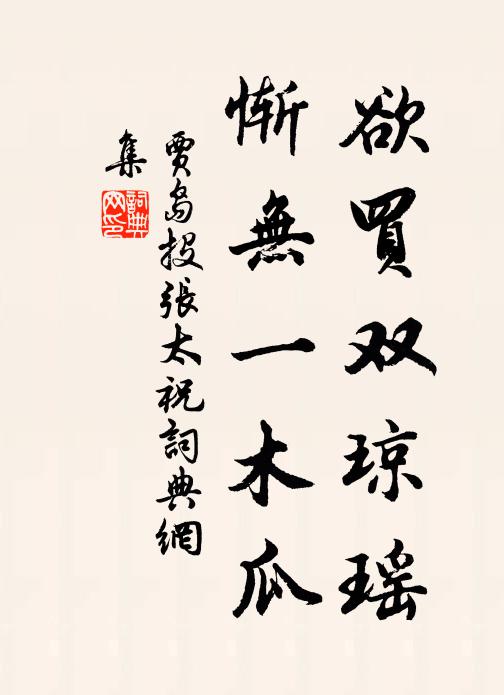 欲買双琼瑶
慚無一木瓜
賈島投張太祝詞典網
集
詞典网印